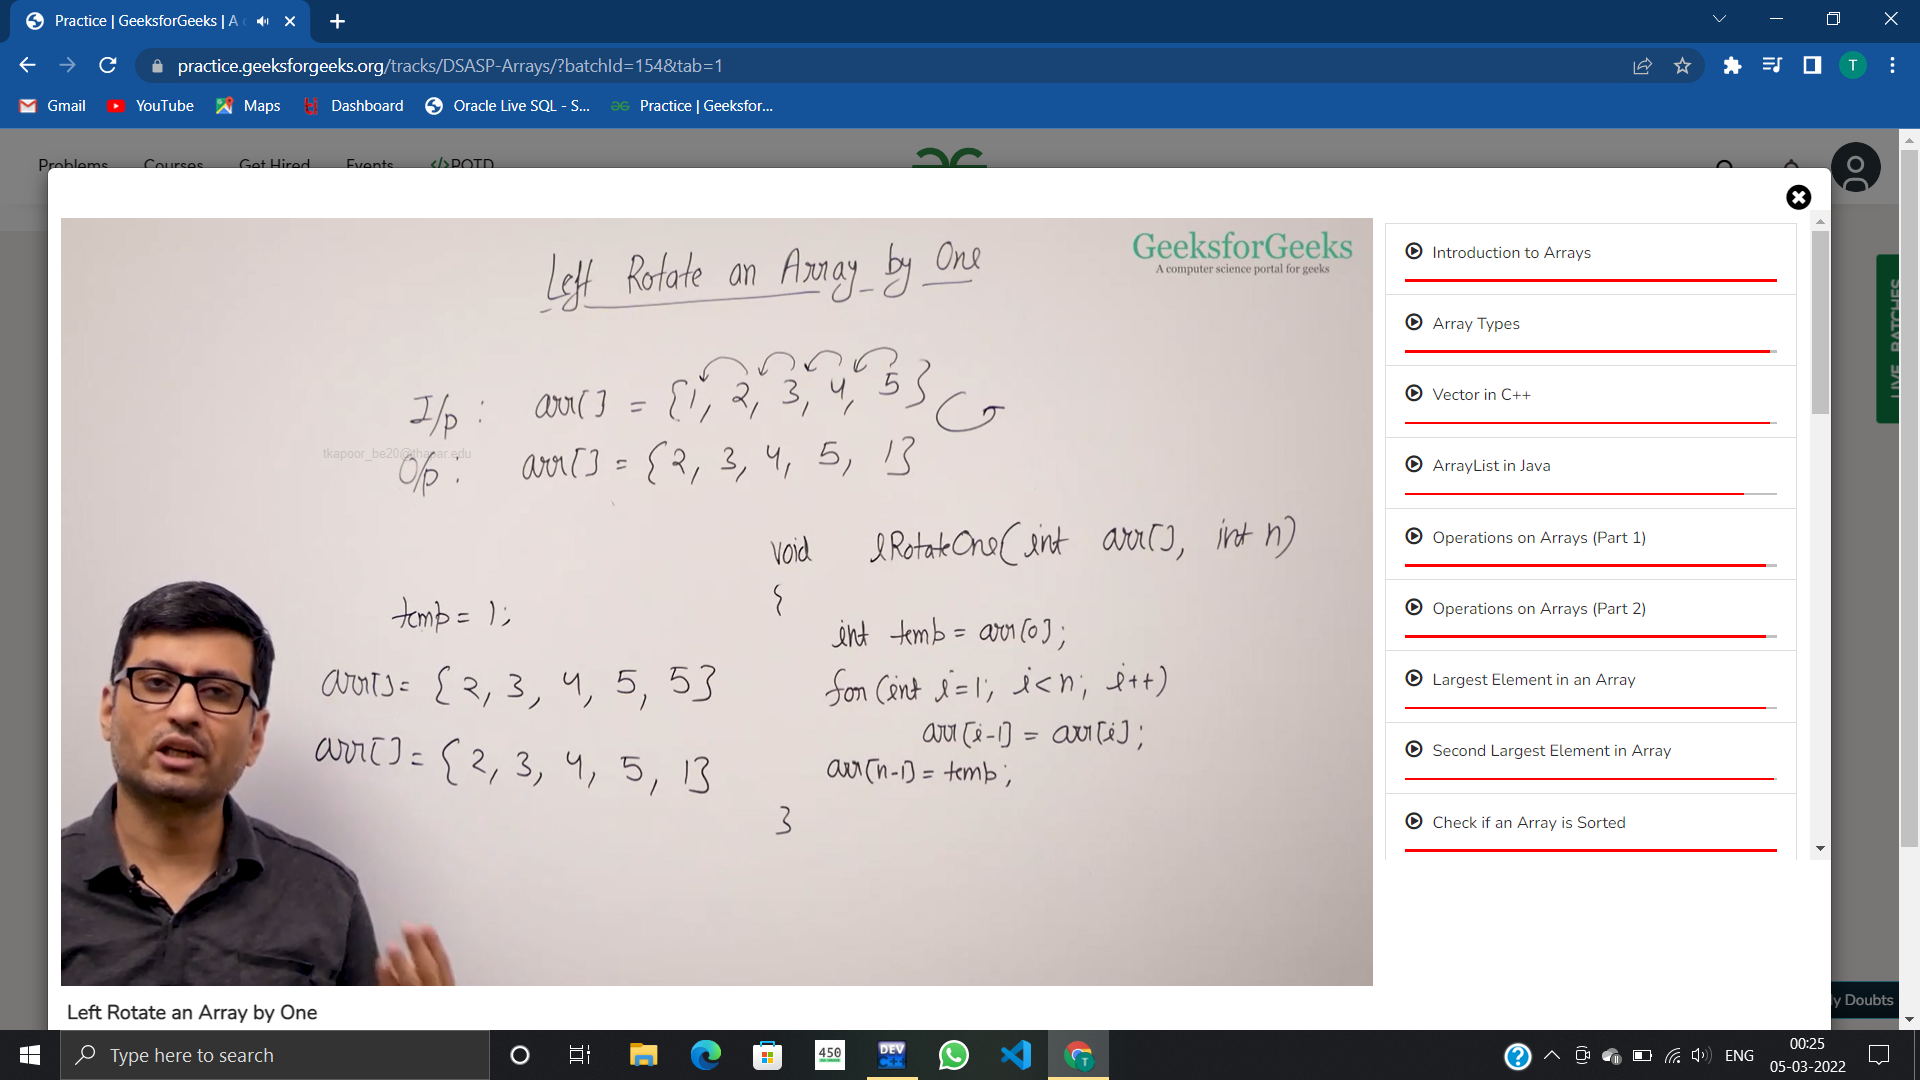 Practice | GeeksforGeeks | A
practice.geeksforgeeks.org/tracks/DSASP-Arrays/?batchId=154&tab=1
T
Gmail
YouTube
Maps
Dashboard
Oracle Live SQL - S...
Practice | Geeksfor...
Problems
Courses
Get Hired
Events
</>POTD
Left Rotate an Array by One
GeeksforGeeks
A computer science portal for geeks
I/p : arr[] = {1, 2, 3, 4, 5}
tkapoor_be20@thapar.edu
O/p : arr[] = {2, 3, 4, 5, 1}
void lRotateOne(int arr[], int n)
{
temp = 1;
int temp = arr[0];
arr[] = {2, 3, 4, 5, 5}
for(int i=1; i<n; i++)
arr[i-1] = arr[i];
arr[] = {2, 3, 4, 5, 1}
arr[n-1] = temp;
}
Left Rotate an Array by One
Introduction to Arrays
Array Types
Vector in C++
ArrayList in Java
Operations on Arrays (Part 1)
Operations on Arrays (Part 2)
Largest Element in an Array
Second Largest Element in Array
Check if an Array is Sorted
LIVE BATCHES
y Doubts
Type here to search
450
DEV
C++
T
ENG
00:25
05-03-2022